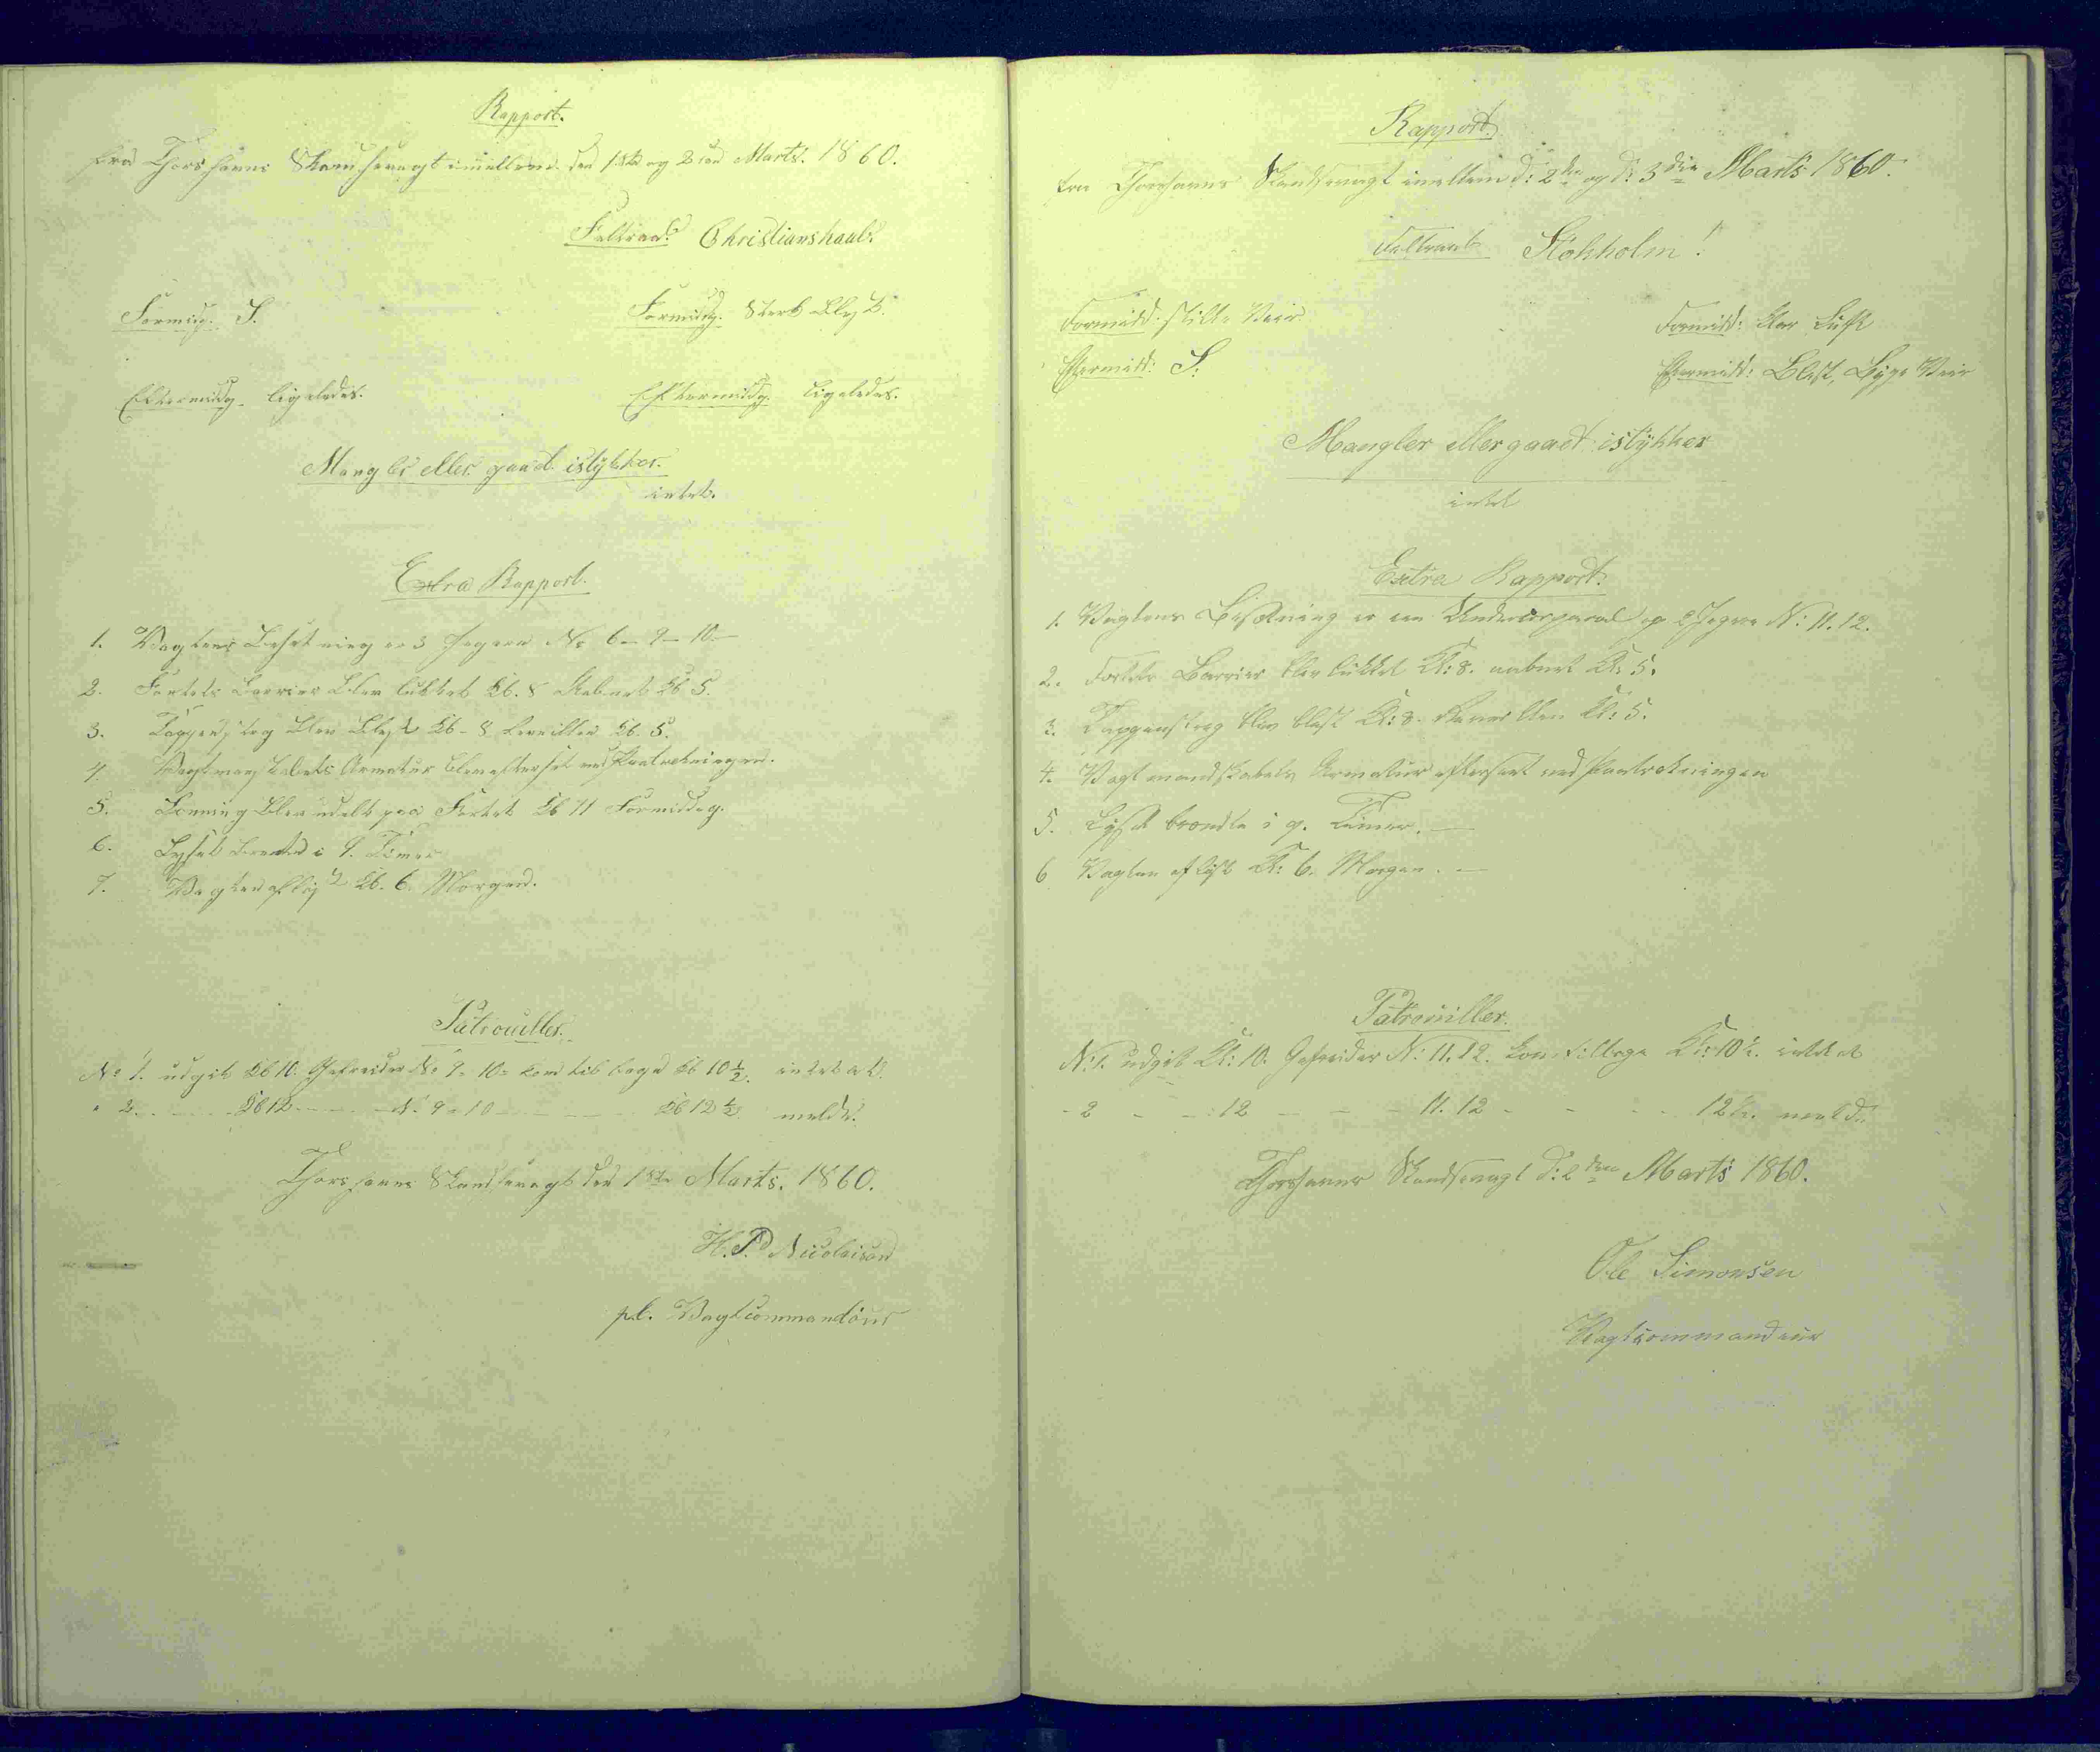 Rapport.
fra Thorshavns Skandsevagt imellem den 1ste og 2den Marts. 1860.
Feltraab. Christianshaab.
Formidg. S.
Formidg. Sterk Blest.
Eftermidg. ligeledes.
Eftermidg. ligeledes.
Mangler eller gaaet istykker.
intet.
Extra Rapport.
1. Vagtens Besetning er 3 Jegere No 6 - 9 - 10 -
2. Fortets Barrier blev lukket Kl. 8 Aabnet Kl 5.
3. Tappenstreg blev blest Kl - 8 Reveillen Kl. 5.
4. Vagtmanskabets Armatur blev efterset ved Paatrekningen.
5. Lønning blev udelt paa Fortet Kl 11 Formiddag.
6. Lyset brendte i 9. Timer
7. Vagten afløst Kl. 6. Morgen.
Patrouiller.
No 1. udgik Kl 10. Gefreider No 9 = 10 = kom tilbage Kl 10½. intet at
" 2. - - - Kl 12 - - - N. 9 = 10 - - - - Kl 12½. melde.
Thorshavns Skandsevagt den 1ste Marts. 1860.
H. P. Nicolaisen
pt. Vagtcommandøur
Rapport.
fra Thorshavns Skandsevagt imellem d: 2den og d: 3die Marts 1860.
Feltraab Stokholm!
Formidd. stille Veir
Formidd: klar Luft
Eftermidd: S.
Eftermidd: Blest, Byge Veir
Mangler eller gaaet istykker
intet
Extra Rapport.
1. Vagtens Besætning er en Undercorporal og 2 Jegere N: 11. 12.
2. Fortets Barrier blev lukket Kl: 8. aabnet Kl. 5.
3. Tappenstreg blev blest Kl: 8. Reveillen Kl: 5.
4. Vagtmandskabets Armatur efterseet ved Paatrekningen
5. Lyset brændte i 9. Timer. —
6 Vagten afløst Kl: 6. Morgen. —
Patrouiller.
N: 1. udgik Kl: 10. Gefreider N: 11. 12. kom tilbage Kl: 10½. intet at
- 2 - - : 12 - - - 11. 12 - - - - 12½. melde
Thorshavns Skandsevagt d: 2den Marts 1860.
Ole Simonsen
Vagtcommandeur